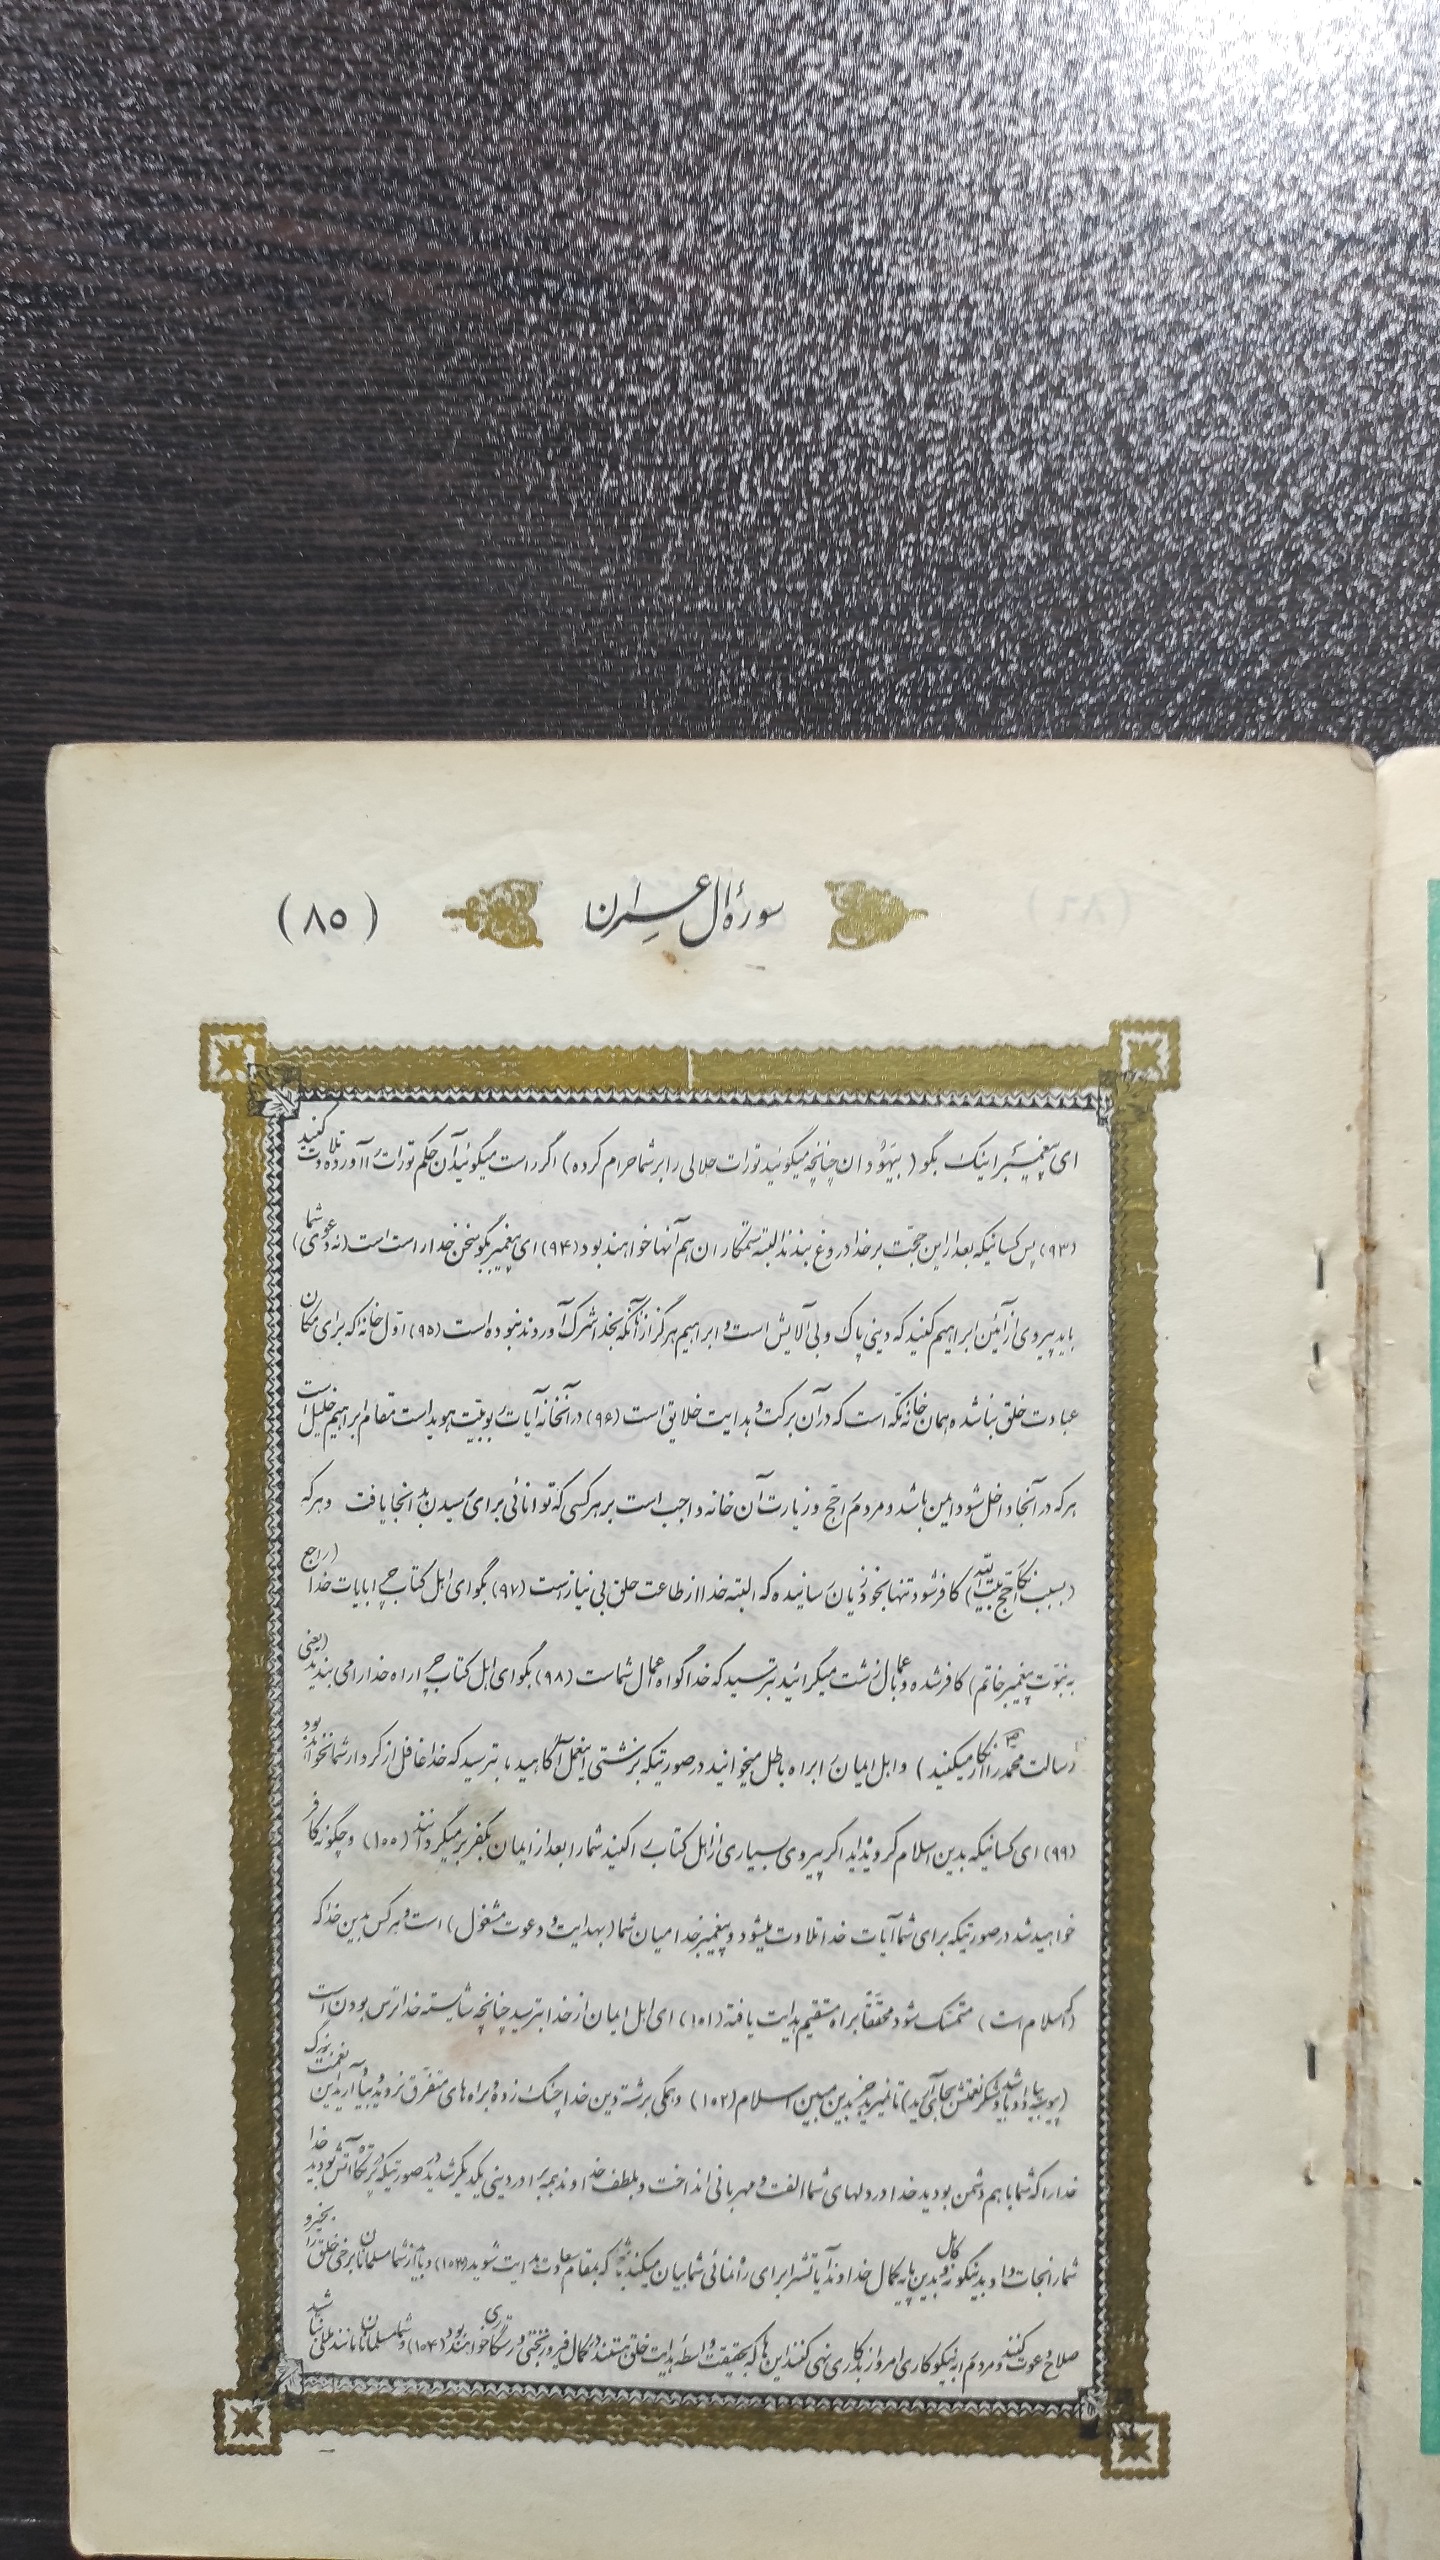 سورهٔ آل عمران
(۸۵)
ای پیغمبر اینک بگو (بیهودان چنانچه میگوئید تورات حلالی را بر شما حرام کرده) اگر راست میگوئید آن حکم تورات را آورده تلاوت کنید
(۹۳) پس کسانیکه بعد از این حجّت بر خدا دروغ بندند البته ستمکاران هم آنها خواهند بود (۹۴) ای پیغمبر بگو سخن خدا راست است (نه دعوی شما)
باید پیروی از آئین ابراهیم کنید که دینی پاک و بی آلایش است و ابراهیم هرگز از آنانکه بخدا شرک آوردند نبوده است (۹۵) اوّل خانهٔ که برای مکان
عبادت خلق بنا شده همان خانهٔ مکّه است که در آن برکت و هدایت خلایق است (۹۶) در آنخانه آیات ربوبیّت هویداست مقام ابراهیم خلیل است
هر که در آنجا داخل شود ایمن باشد و مردم را حجّ و زیارت آن خانه واجب است بر هر کسی که توانائی برای رسیدن بدانجا یافت و هر که
(بسبب انکار حجّ بیت الله) کافر شود تنها بخود زیان رسانیده که البته خدا از طاعت خلق بی نیاز است (۹۷) بگو ای اهل کتاب چرا بآیات خدا (راجع
به نبوّت پیغمبر خاتم) کافر شده و باعمال زشت میگرائید بترسید که خدا گواه اعمال شماست (۹۸) بگو ای اهل کتاب چرا راه خدا را می بندید (یعنی
رسالت محمد را انکار میکنید) و اهل ایمان را براه باطل میخوانید در صورتیکه بزشتی این عمل آگاهید، بترسید که خدا غافل از کردار شما نخواهد بود
(۹۹) ای کسانیکه بدین اسلام گرویده اید اگر پیروی بسیاری از اهل کتاب را کنید شما را بعد از ایمان بکفر بر میگردانند (۱۰۰) و چگونه کافر
خواهید شد در صورتیکه برای شما آیات خدا تلاوت میشود و پیغمبر خدا میان شما (بهدایت و دعوت مشغول) است و هر کس بدین خدا که
(که اسلام است) متمسّک شود محققاً براه مستقیم هدایت یافته (۱۰۱) ای اهل ایمان از خدا بترسید چنانچه شایسته خدا ترس بودن است
(پیوسته بیاد او باشید و شکر نعمتش بجای آرید) تا نمیرید جز بدین مبین اسلام (۱۰۲) و همگی برشته دین خدا چنگ زده و براه های متفرّق نروید و بیاد آرید این نعمت بزرگ
خدا را که شما با هم دشمن بودید خدا در دلهای شما الفت و مهربانی انداخت و بلطف خداوند همه برادر دینی یکدیگر شدید در صورتیکه در پرتگاه آتش بودید خدا
شما را نجات داد بدینگونه و بدین پایه کمال خداوند آیاتش را برای راهنمائی شما بیان میکند باشد که بمقام سعادت هدایت شوید (۱۰۳) و باید از شما مسلمانان برخی خلق را بخیر و
صلاح دعوت کنند و مردم را به نیکوکاری امر و از بدکاری نهی کنند اینها که بحقیقت واسطهٔ هدایت خلق هستند در کمال فیروزبختی و رستگاری خواهند بود (۱۰۴) و شما مسلمانان مانند مللی نباشید